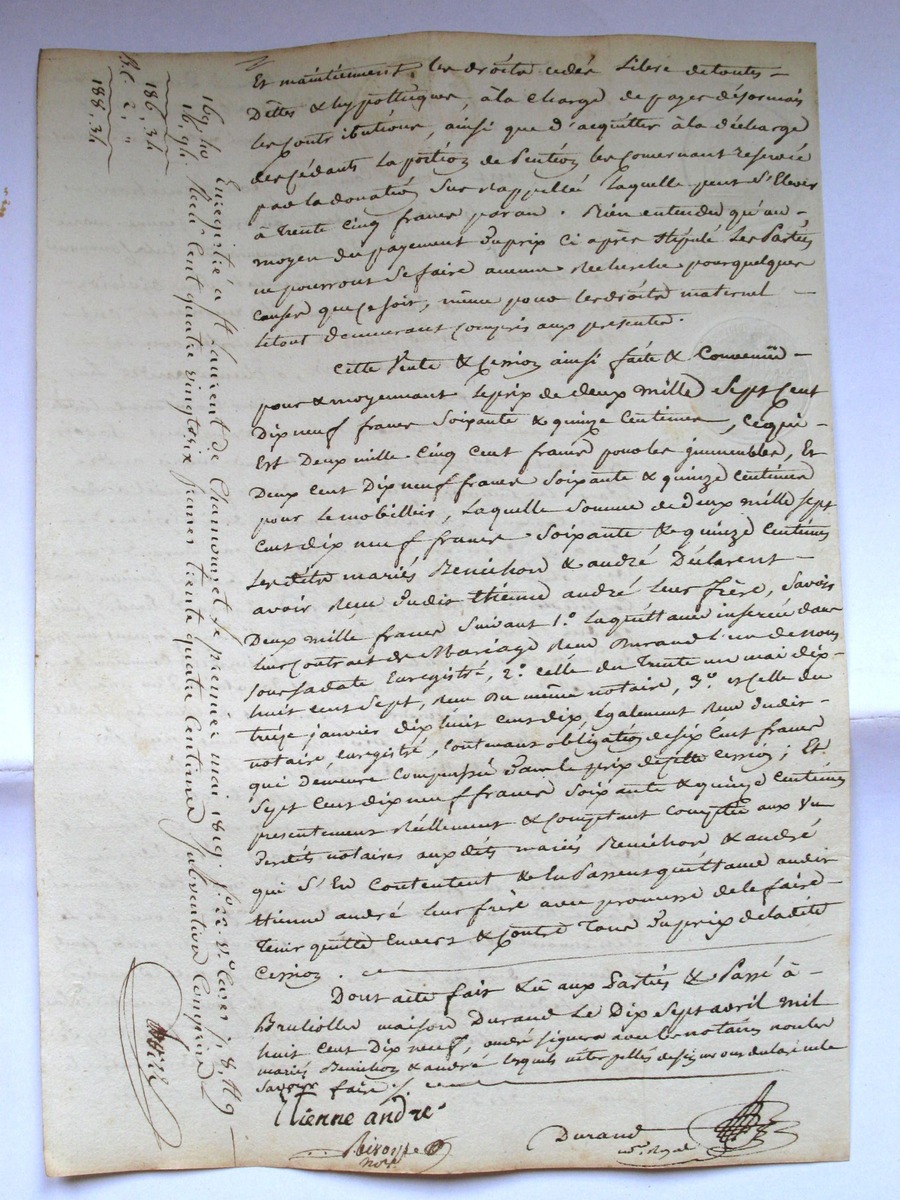 Et maintiennent les droits cedés libre de toutes
Dettes & hypotteques, à la charge de payer désormais
les contributions, ainsi que d'acquitter à la décharge
des cédants la portion de pention les concernant reservée
par la donation sus rappellée laquelle peut s'élever
à trente cinq francs par an. Bien entendu qu'au
moyen du payement du prix ci après stipulé les Parties
ne pourront se faire aucune recherche pour quelques
causes que ce soit, même pour les droits maternel
le tout demeurant compris aux presentes.
Cette vente & cession ainsi faite & convenue
pour & moyennant le prix de deux mille sept cent
Dix neuf francs soixante & quinze centimes, ce qui
Est Deux mille cinq cent francs pour les immeubles, Et
Deux cent Dix neuf francs soixante & quinze centimes
pour le mobillier, laquelle somme de deux mille sept
cent dix neuf francs soixante & quinze centimes
les dits mariés Benichon & andré Déclarent
avoir reçu dudit thienne andré leur frère, savoir
Deux mille francs suivant 1.º la quittance inserée dans
leur contrat de Mariage reçu Durand l'un de nous
sous sa date Enregistré, 2.º celle du trente un mai dix
huit cent sept, reçu du même notaire, 3.º et celle du
treize janvier dix huit cent dix, également reçu dudit
notaire, enregistré, contenant obligation de six cent francs
qui demeure compensée dans le prix de cette cession; Et
sept cent dix neuf francs soixante & quinze centimes
presentement réellement & comptant comptée aux vu
desdits notaires auxdits mariés Benichon & andré
qui s'En contentent & lui Passent quittance audit
thienne andré leur frère avec promesse de le faire
tenir quitte Envers & contre tous du prix de ladite
Cession.
Dont acte fait & lu aux Parties & Passé à
Brullioles maison Durand Le Dix sept avril mil
huit cent Dix neuf, andré signera avec les notaires non les
mariés Benichon & andré lesquels interpellés de signer ont declaré ne le
savoir faire /.
Etienne andré
Durand
not. Royal
not.
Enregistré à St Laurent de Chamousset le premier mai 1819. f.º 22 v.º
Reçu cent quatre vingt six francs trente quatre centimes subvention comprise
169, 40
16, 94
186, 34
2, "
188, 34